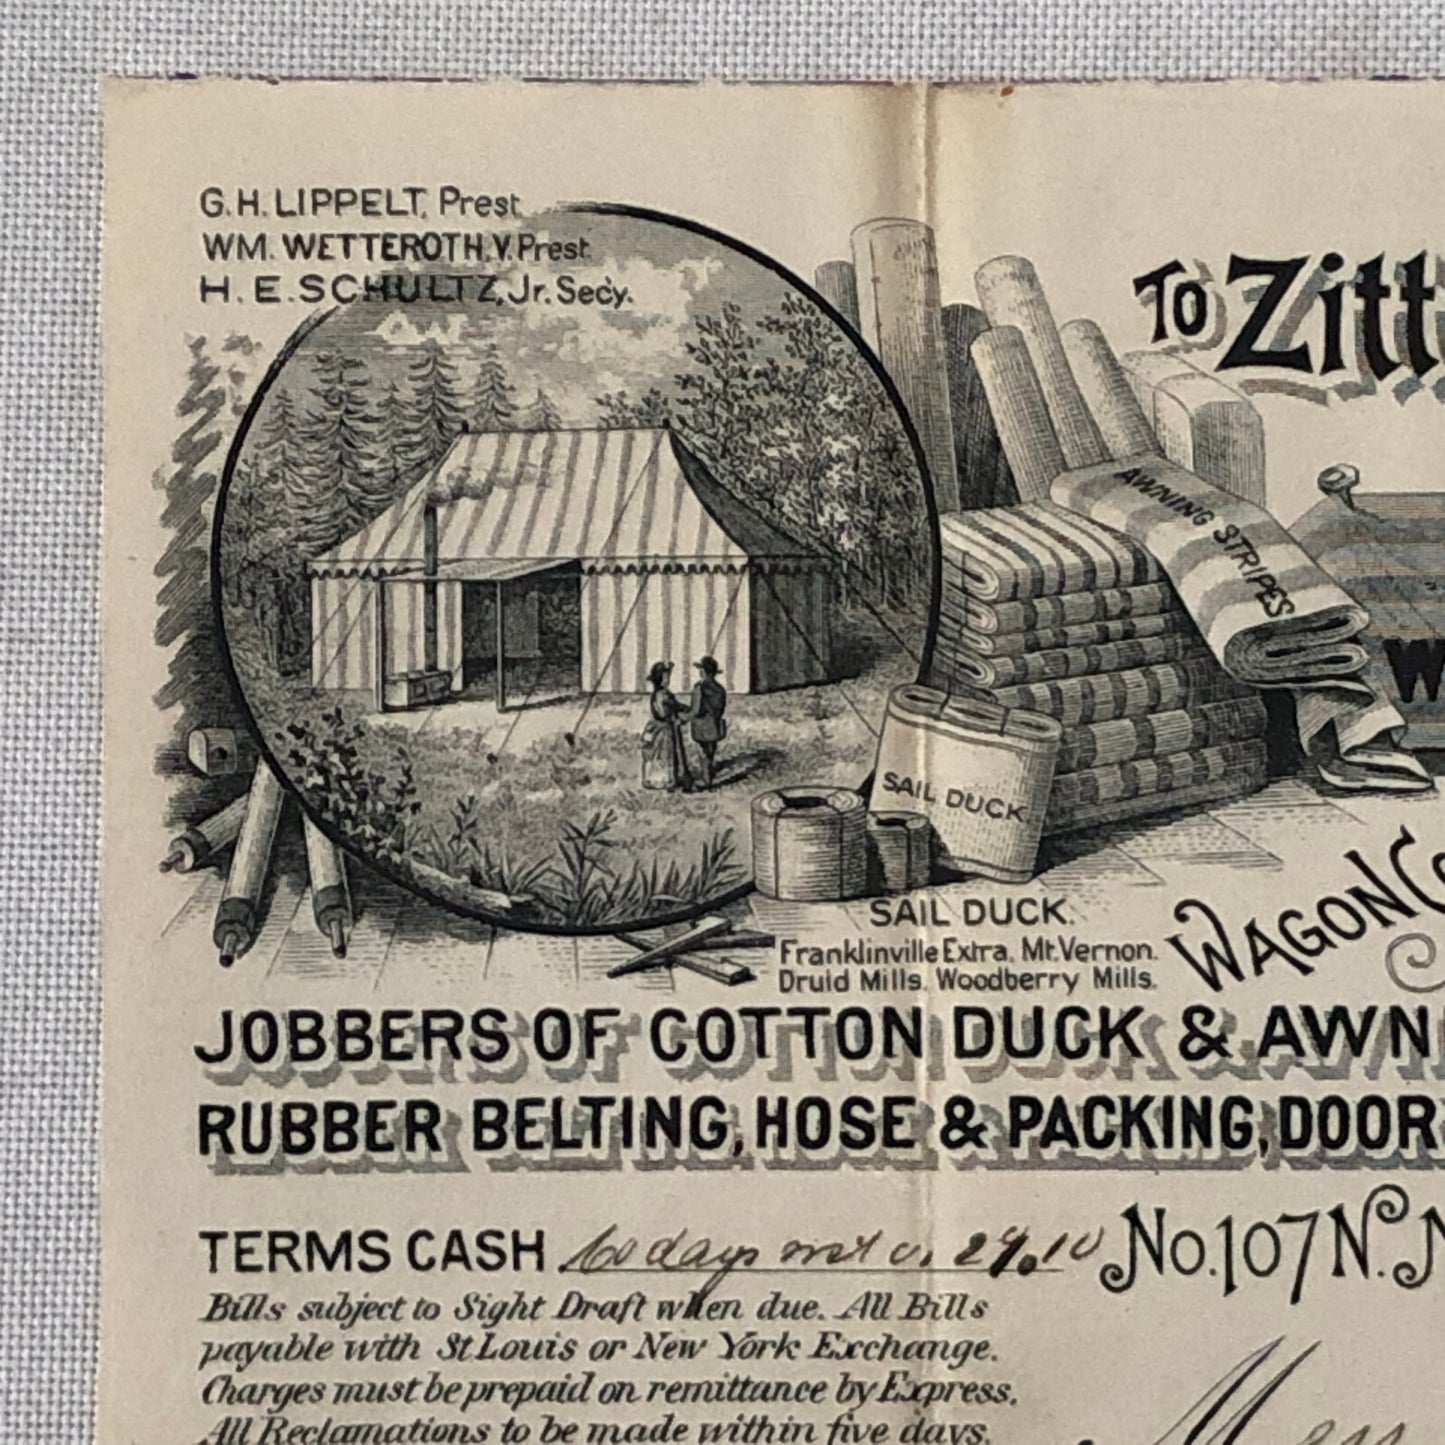 G.H. LIPPELT, Prest.
WM. WETTEROTH, V. Prest.
H. E. SCHULTZ, Jr. Secy.
TO Zitt
AWNING STRIPES
W
SAIL DUCK
SAIL DUCK.
Franklinville Extra. Mt. Vernon.
Druid Mills. Woodberry Mills.
WAGON CO
JOBBERS OF COTTON DUCK & AWN
RUBBER BELTING, HOSE & PACKING, DOOR
TERMS CASH 60 days net or 2%. 10
No. 107 N. N
Bills subject to Sight Draft when due. All Bills
payable with St Louis or New York Exchange.
Charges must be prepaid on remittance by Express.
All Reclamations to be made within five days.